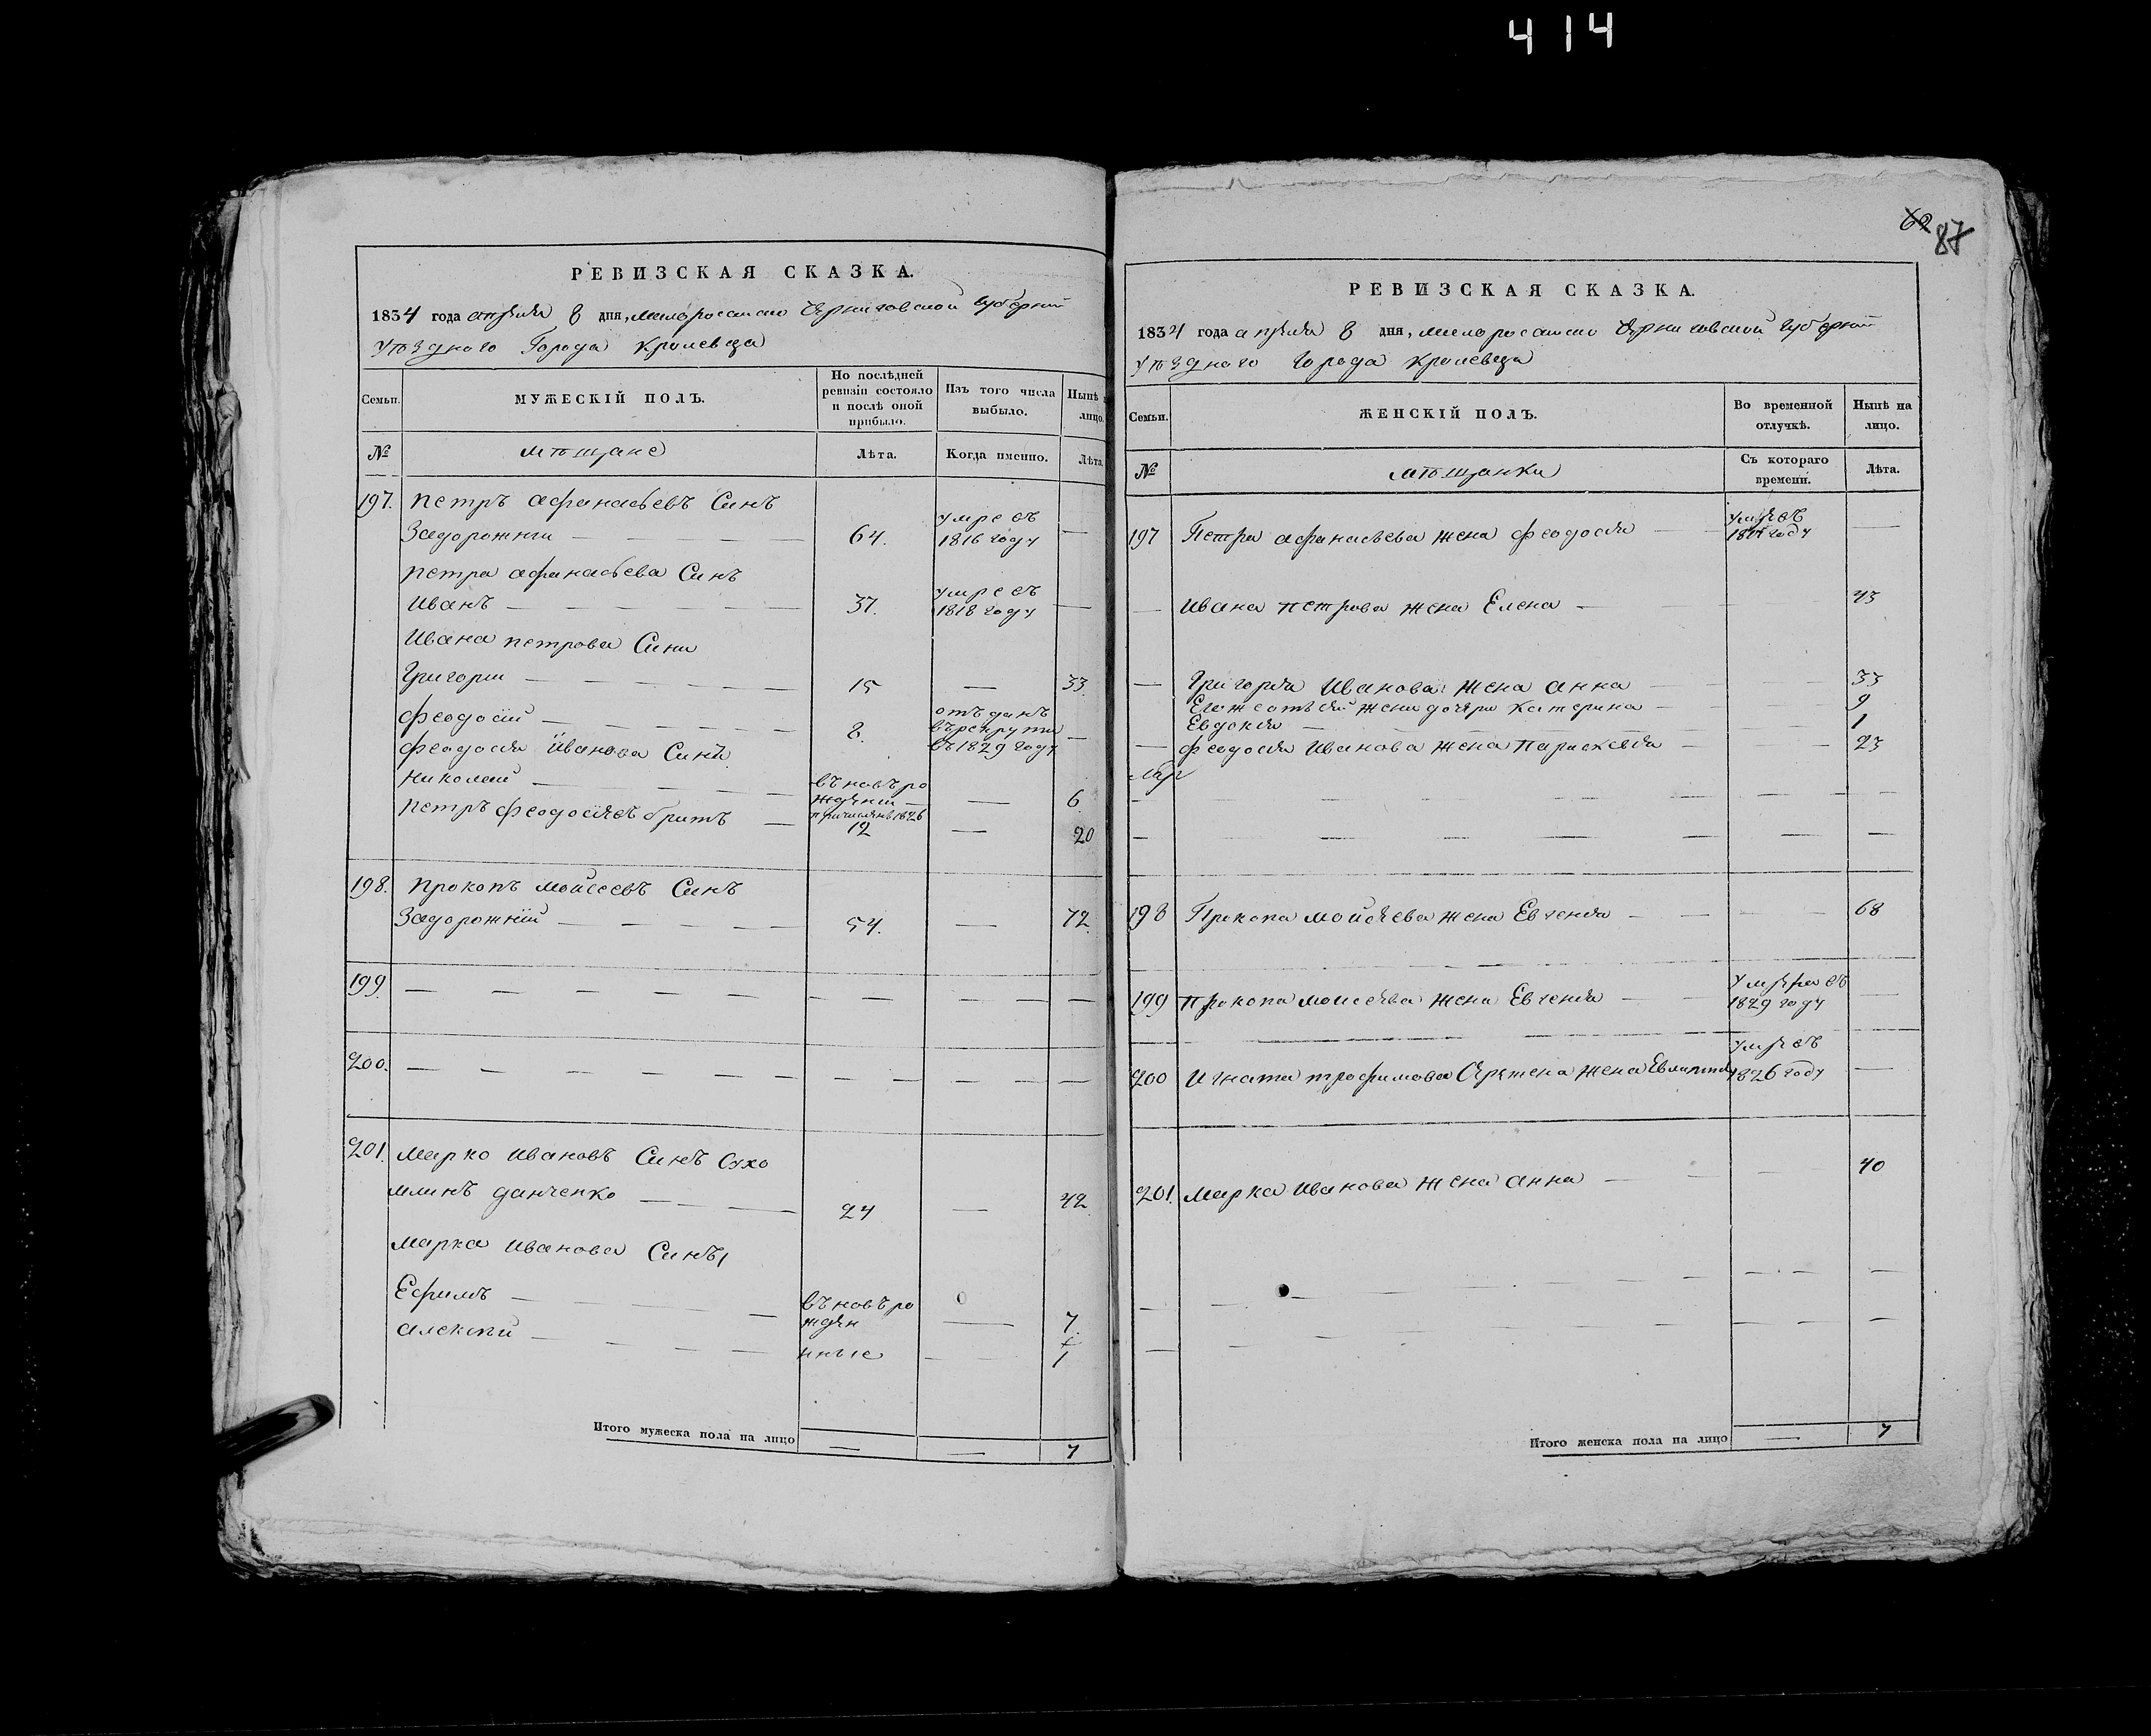 414
РЕВИЗСКАЯ СКАЗКА.
1834 года апреля 8 дня, малоросiйско Черниговской Губернiи
Уѣзднаго Города Кролевца
Семьи.
МУЖЕСКIЙ ПОЛЪ.
По послѣдней ревизiи состояло и послѣ оной прибыло.
Изъ того числа выбыло.
Нынѣ на лицо.
№
мѣщане
Лѣта.
Когда именно.
Лѣта.
197. Петръ афанасьевъ Синъ
Задорожни — 64. умре въ 1816 году —
Петра афанасьева Синъ
Иванъ — 37. умре въ 1818 году —
Ивана петрова Сини
Григории — 15 — 33
Феодосiй — 8. отъданъ въ рекрути въ 1829 году —
Феодосiя Иванова Синъ
Николай — въ новъ рожденiи — 6
Петръ Феодосiевъ братъ — 12 — 20
198. Прокопъ Мойсеевъ Синъ
Задорожнiй — 54. — 72
199. — — —
200. — — —
201. Марко Ивановъ Синъ Сухо
млинъ данченко — 24 — 42
Марка Иванова Синъı
Ефимъ — въ новъ рожден — 7.
Алексѣй — нные — 1
Итого мужеска пола на лицо — — 7
62
87
РЕВИЗСКАЯ СКАЗКА.
1834 года апреля 8 дня, малоросiйско Черниговской губернiи
Уѣзднаго города Кролевца
Семьи.
ЖЕНСКIЙ ПОЛЪ.
Во временной отлучкѣ.
Нынѣ на лицо.
№
мѣщанки
Съ котораго времени.
Лѣта.
197 Петра афанасьева жена феодосiя —
— Ивана петрова жена Елена — 43
— Григорiя Иванова жена анна — 33
жени дочери Катерина — 9
Евдокiя — 1
— феодосiя Иванова жена параскевiя — 23
198 Прокопа мойсеева жена Евгенiя — 68
199 Прокопа моисеева жена Евгенiя — умерла въ 1829 году —
200 Игната трофимова жена 1826 году —
201. Марка Иванова жена анна — 40
Итого женска пола на лицо — 7